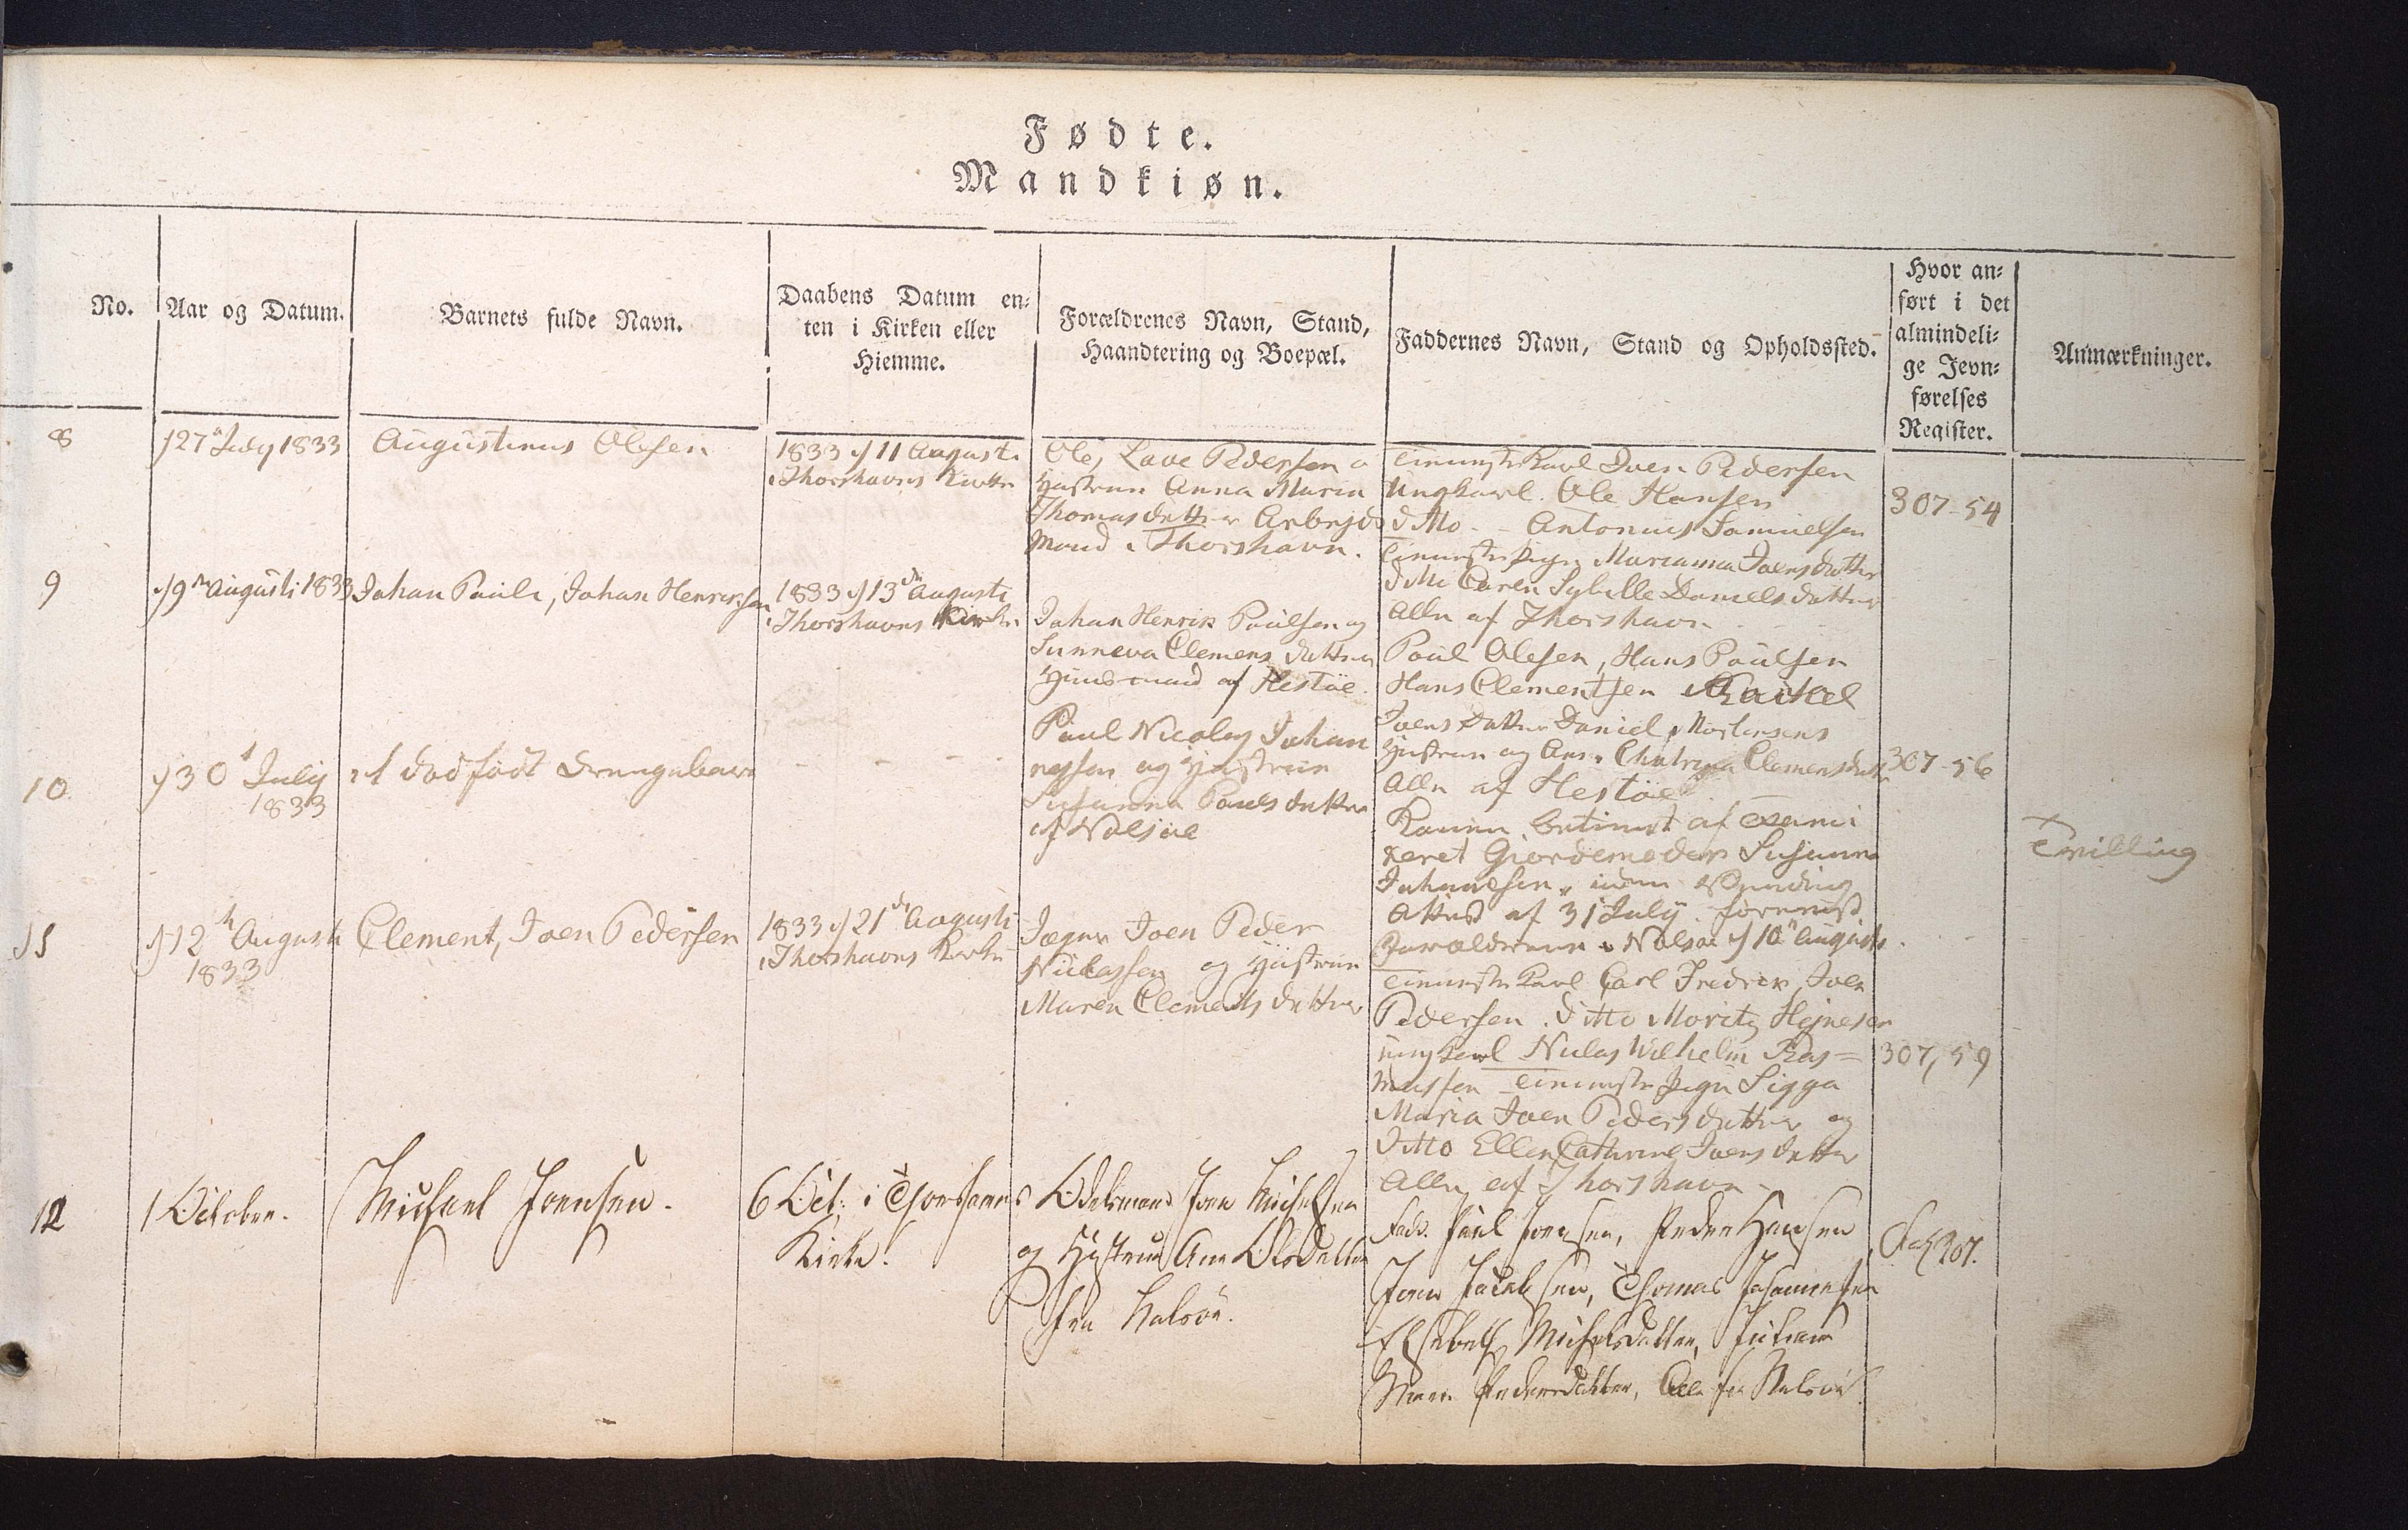 Fødte.
Mandkiøn.
No.
Aar og Datum.
Barnets fulde Navn.
Daabens Datum en-
ten i Kirken eller
Hiemme.
Forældrenes Navn, Stand,
Haandtering og Boepæl.
Faddernes Navn, Stand og Opholdssted.
Hvor an-
ført i det
almindeli-
ge Jevn-
førelses
Register.
Anmærkninger.
8
27 July 1833
Augustinus Olesen
1833 11 Augusti
i Thorshavns Kirke
Ole, Lave Pedersen o
Hustrue Anna Maria
Thomasdatter Arbejds
Mand i Thorshavn.
Tieneste Karl Joen Pedersen
Ungkarl. Ole Hansen
ditto - Antonius Samuelsen
Tieneste Pige Marianna Joensdatter
ditto Caren Sybille Danielsdatter
Alle af Thorshavn
307-54
9
9 Augusti 1833
Johan Paule, Johan Henriksen
1833 13 Augusti
i Thorshavns Kirke
Johan Henrik Poulsen og
Sunneva Clemens datter
Huusmand af Hestöe.
Poul Olesen, Hans Poulsen
Hans Clementsen Rachel
Joens Datter Daniel Mortensens
Hustrue og Ane Chatrina Clemensdatter
Alle af Hestöe
307-56
10
30 July
1833
et død født Drengebarn
Poul Nicolay Johan
nessen og Hustrue
Susanna Pouls datter
af Nolsöe
Konen betient af Exami
neret Giordemoder Susanna
Attest af 31 July. foreviist
Forældrene Nolsöe 10 Augusti
Tvilling
11
12 Augusti
1833
Clement, Joen Pedersen
1833 21 Augusti
i Thorshavns Kirke
Jæger Joen Peder
Niclassen og Hustrue
Maren Clements datter
Tieneste Karl Carl Fredrik Joen
Pedersen. ditto Moritz Hejnesen
ungkarl Niclas Wilhelm Ras=
mussen Tieneste Pige Sigga
Maria Joen Peders datter og
ditto Ellen Cathrine Joens datter
Alle af Thorshavn
307, 59
12
1 October.
Michael Joensen.
6 Oct: i Thorshavns
Kirke.
Odelsmand Joen Michelsen
og Hustrue Ane Olsdatter
fra Nolsöe.
Fadd. Poul Joensen, Peder Hansen
Joen Jacobsen, Thomas Johannesen
Elsebeth Michelsdatter,
Maren Pedersdatter, Alle fra Nolsöe.
Pag 307.